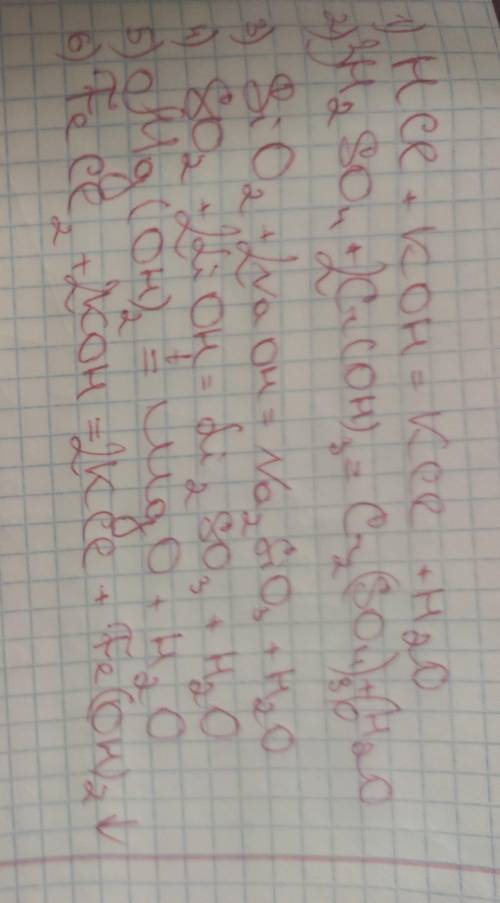 1) HCl + KOH = KCl + H2O
2) 3H2SO4 + 2Cr(OH)3 = Cr2(SO4)3 + 6H2O
3) SiO2 + 2NaOH = Na2SiO3 + H2O
4) SO2 + 2LiOH = Li2SO3 + H2O
5) Mg(OH)2 = MgO + H2O
6) FeCl2 + 2KOH = 2KCl + Fe(OH)2 ↓